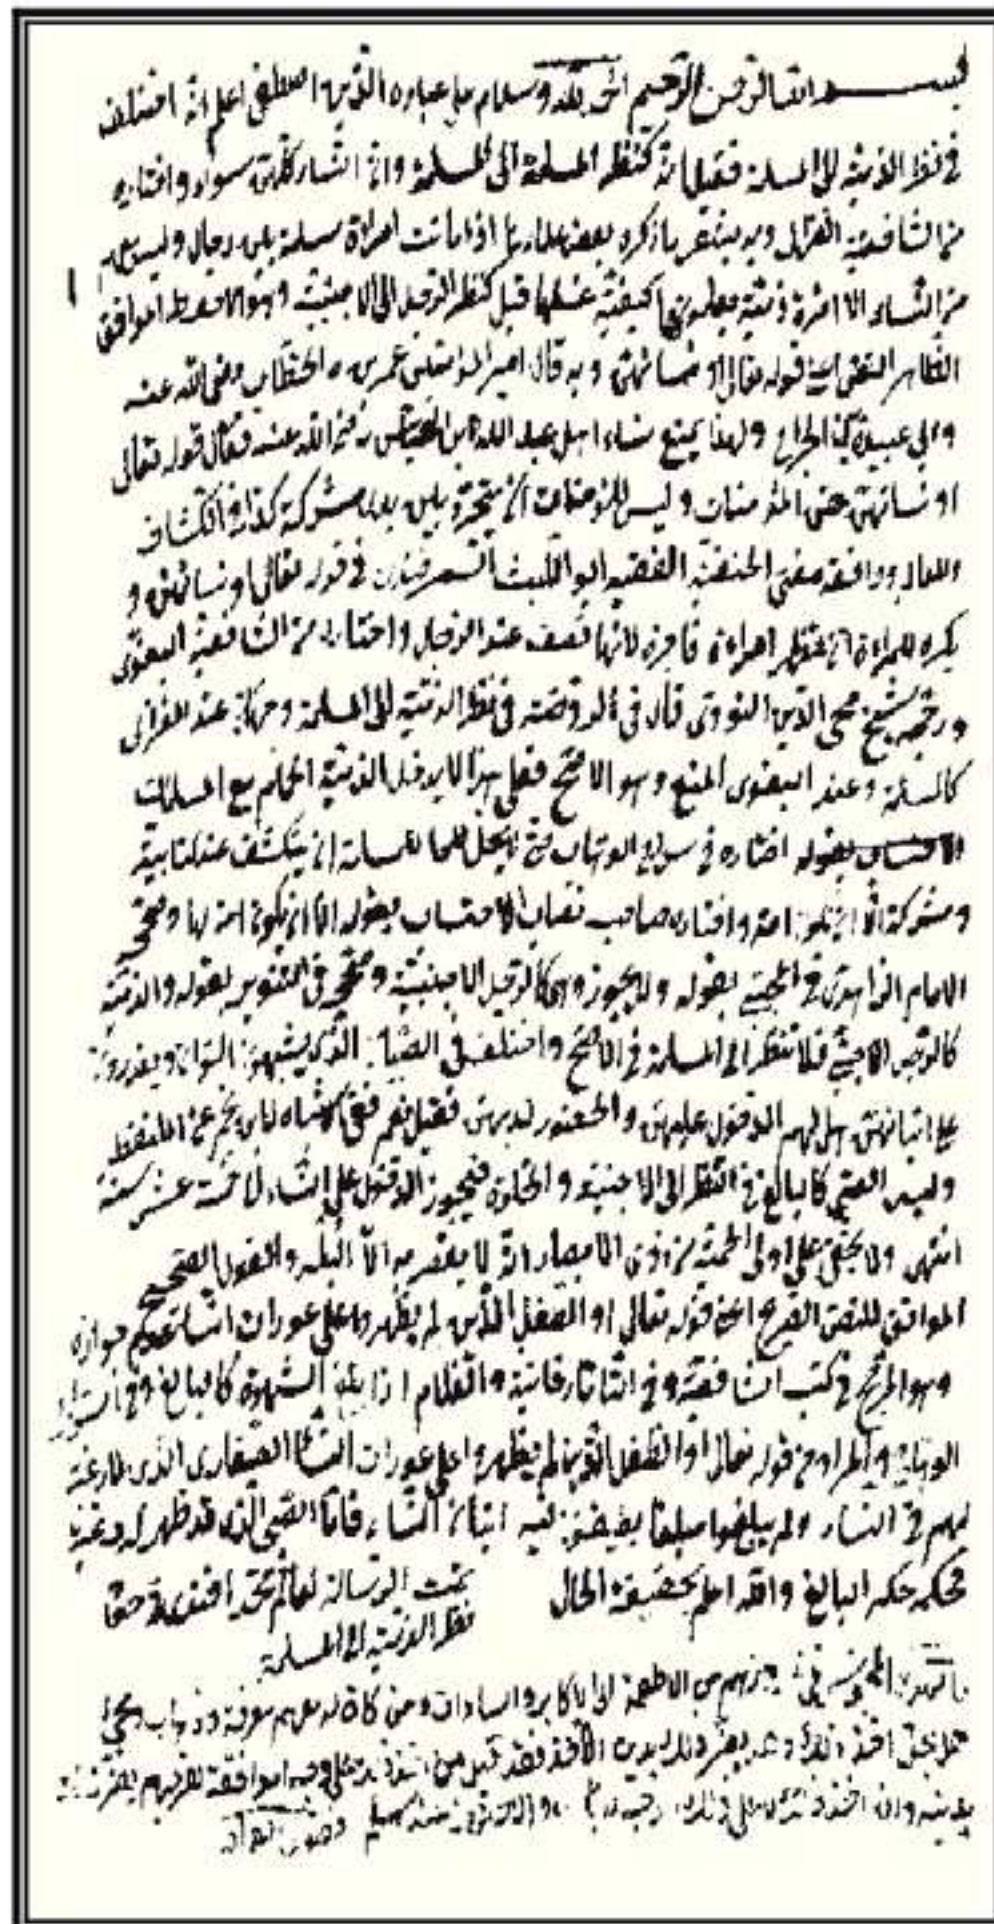 بسم الله الرحمن الرحيم الحمد لله وسلام على عباده الذين اصطفى اعلم انه اختلف
في نظر الذمية الى المسلمة فقيل انه كنظر المسلمة الى المسلمة وان النساء كلهن سواء واختاره
من الشافعية الغزالي وبه يشعر ما ذكره بعض علمائنا اذا ماتت امراة مسلمة بين رجال وليس معهم
من النساء الا امراة ذمية يعلمونها كيفية غسلها قيل كنظر الرجل الى الاجنبية وهو الاحوط الموافق
لظاهر النص اعني قوله تعالى او نسائهن وبه قال امير المؤمنين عمر بن الخطاب رضي الله عنه
وابي عبيدة بن الجراح ولهذا يمنع نساء اهل عبد الله ابن العباس رضي الله عنه فقال قوله تعالى
او نسائهن هن المؤمنات وليس للمؤمنات ان يتجرد بين يدي مشركة كذا في الكشاف
ووافقه مفتي الحنفية الفقيه ابو الليث السمرقندي في قوله تعالى او نسائهن و
يكره للمراة ان تنظر امراة فاجرة لانها تصف عند الرجل واختاره من الشافعية البغوي
ورجحه الشيخ محي الدين النووي قال في الروضة في نظر الذمية الى المسلمة وجهان عند الغزالي
كالمسلمة وعند البغوي المنع وهو الاصح فعلى هذا لا يدخل الذمية الحمام مع المسلمات
بقوله اختاره في لا يحل للمسلمة ان يتكشف عند كتابية
ومشركة الا ان تكون امة واختاره صاحب نصاب الاحتساب بقوله الا ان يكون امة لها وصحح
الامام الزاهدي في المجتبى بقوله ولا يجوز وهي كالرجل الاجنبية وصحح في التنوير بقوله والذمية
كالرجل الاجنبي فلا تنظر الى المسلمة في الاصح واختلف في الصبيان الذي يشتهون النساء ويقدرون
على اتيانهن هل لهم الدخول عليهن والحضور لديهن فقيل نعم ففي الاشباه لابن نجيم عن الملتقط
وليس الصبي كالبالغ في النظر الى الاجنبية والخلوة فيجوز الدخول على النساء الى خمسة عشر سنة
انتهى ولا يخفى على اولي الحمية من ذوي الابصار انه لا يغتر به الا البله والقول الصحيح
الموافق للنص الصريح اعني قوله تعالى او الطفل الذين لم يظهروا على عورات النساء عدم جوازه
وهو المرجح في كتب الشافعية وفي التاتارخانية والغلام اذا بلغ الشهوة كالبالغ وفي
والمراد من قوله تعالى او الطفل الذين لم يظهروا على عورات النساء الصغار الذي لا رغبة
لهم في النساء ولم يبلغوا مبلغا اتيان النساء فاما الصبي الذي قد ظهر له رغبة
فحكمه حكم البالغ والله اعلم بحقيقة الحال
تمت الرسالة لعالم محمد افندي في حق
نظر الذمية الى المسلمة
من الاطعمة الى الاكابر والسادات ومن كان له معهم معرفة وذهاب ومجيء
هل يحل اخذ ذلك وهل يضر ذلك بدين الاخذ فقد قيل من اخذ ذلك على وجه الموافقة لفرحهم يضر ذلك
بدينه وان اخذه